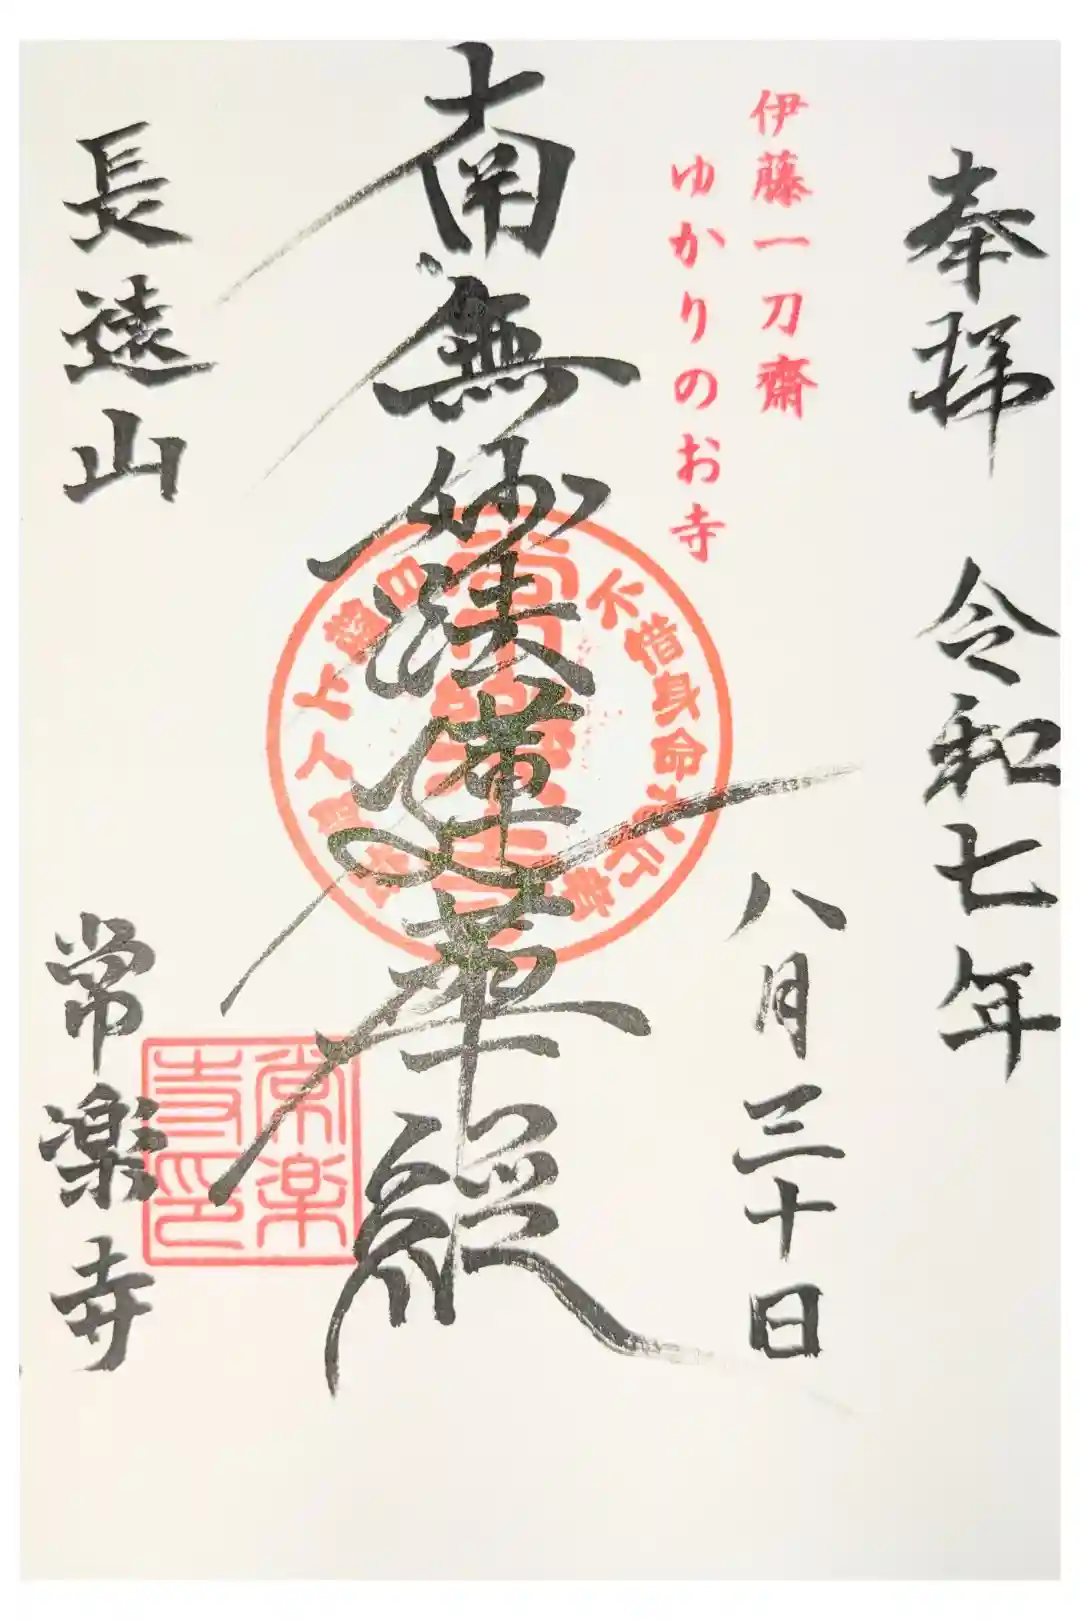 奉拝 令和七年
八月三十日
伊藤一刀斎
ゆかりのお寺
南無妙法蓮華経
不惜身命
常楽寺印
長遠山
常楽寺